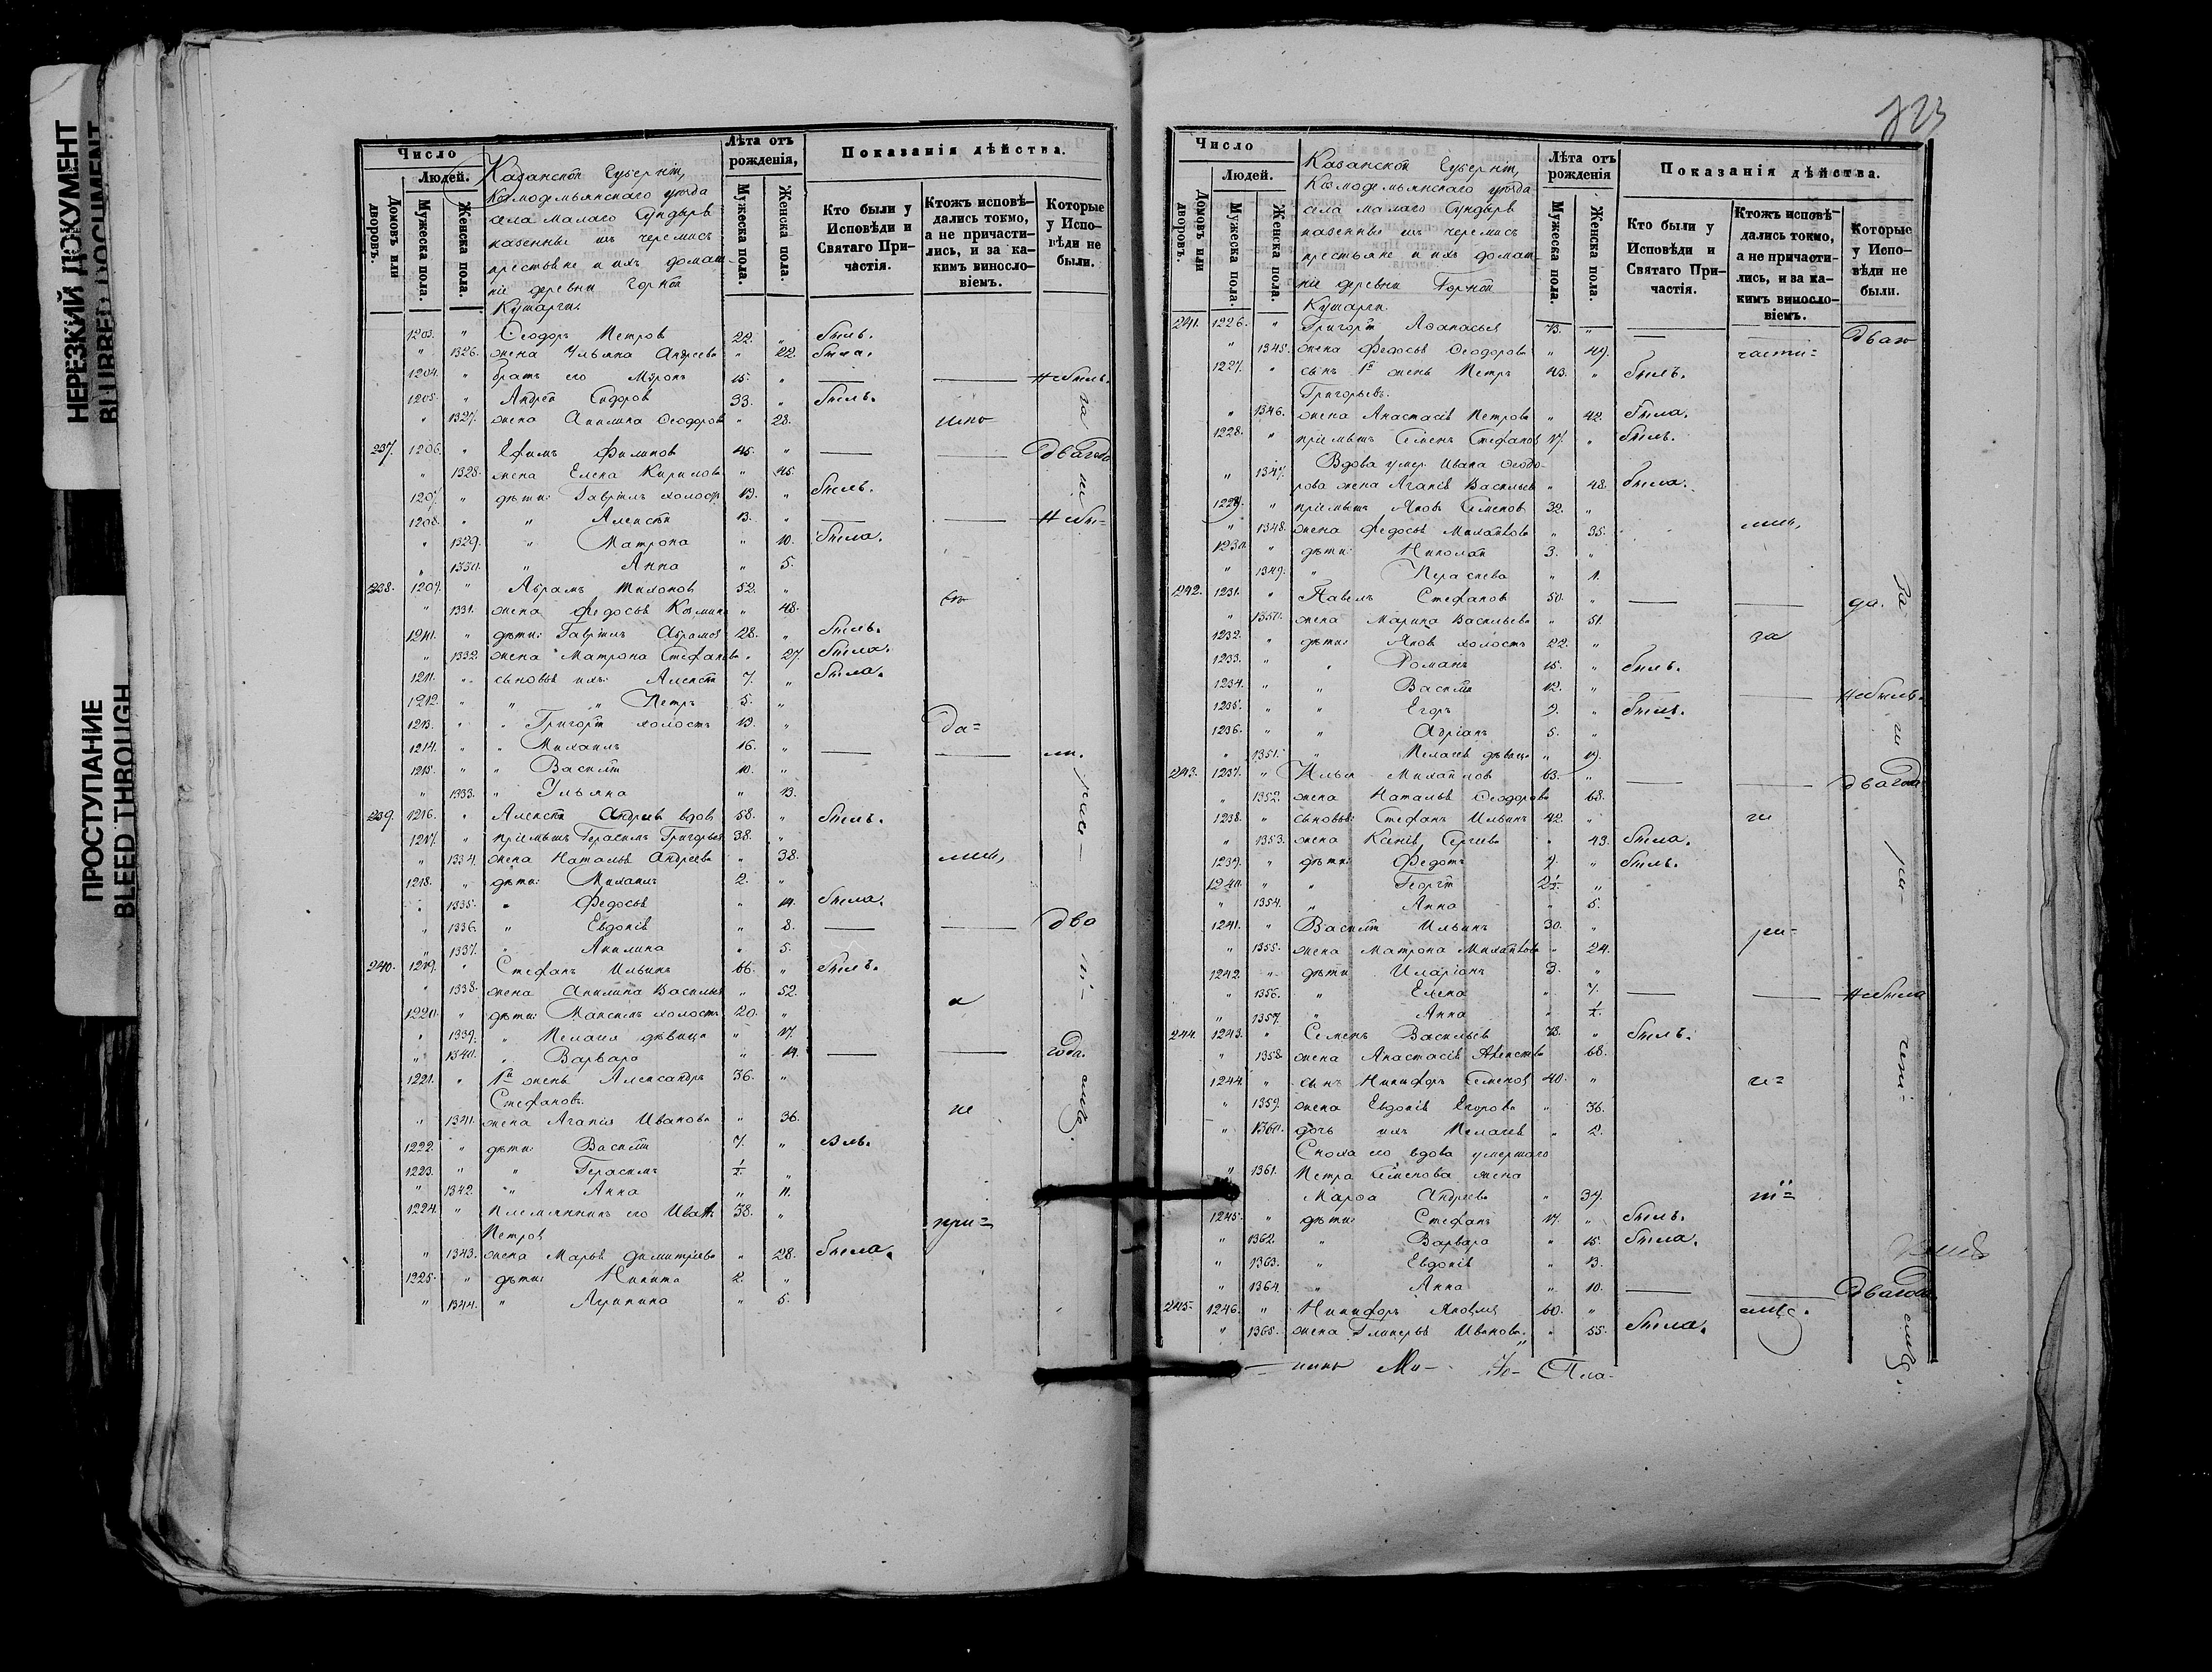 НЕРЕЗКИЙ ДОКУМЕНТ
BLURRED DOCUMENT
ПРОСТУПАНИЕ
BLEED THROUGH
Число
Домовъ или дворовъ.
Людей.
Мужеска пола.
Женска пола.
Казанской Губернiи,
Козмодемьянскаго уѣзда
села Малаго Сундыря
казенные изъ черемисъ
крестьяне и ихъ домаш-
нiе деревни Горной
Кушарги.
Лѣта отъ рожденiя,
Мужеска пола.
Женска пола.
Показанiя дѣйства.
Кто были у Исповѣди и Святаго При-частiя.
Ктожъ исповѣ-дались токмо, а не причасти-лись, и за ка-кимъ винословiемъ.
Которые у Испо-вѣди не были.
1203. " Ѳеодоръ Петровъ 22. " былъ.
" 1326. жена Ульяна Андреева " 22. была.
1204. " братъ его Миронъ 15. " — — Небылъ.
1205. " Андрей Сидоровъ 33. " былъ.
" 1327. жена Акилина Ѳеодорова " 28.
237. 1206. " Ефимъ Филиповъ 45. " — — два года
" 1328. жена Елена Кирилова " 45.
1207. " дѣти: Гаврiилъ холостъ 19. " былъ.
1208. " " Алексѣй 13. " — — Небы=
" 1329. " Матрона " 10. была.
" 1330. " Анна " 5.
238. 1209. " Абрамъ Тихоновъ 52. "
" 1331. жена Федосья Козмина " 48.
1210. " дѣти: Гаврiилъ Абрамовъ 28. " былъ.
" 1332. жена Матрона Стефанова " 27. была.
1211. " сыновья ихъ: Алексѣй 7. " была.
1212. " " " Петръ 5. "
1213. " " Григорiй холостъ 19. " да=
1214. " " Михаилъ 16. " — — ли.
1215. " " Василiй 10. "
" 1333. " Ульяна " 13.
239. 1216. " Алексѣй Андреевъ вдовъ 58. " былъ.
1217. " прiемышъ Герасимъ Григорьевъ 38. "
" 1334. жена Наталья Андреева " 38.
1218. " дѣти: Михаилъ 2. "
" 1335. " Федосья " 14. была.
" 1336. " Евдокiя " 8. — — два
" 1337. " Акилина " 5.
240. 1219. " Стефанъ Ильинъ 66. " былъ.
" 1338. жена Акилина Васильева " 52.
1220. " дѣти: Максимъ холостъ 20. "
" 1339. " Пелагея дѣвица " 17.
" 1340. " Варвара " 14. — — года.
1221. " 1й жены Александръ 36. "
Стефановъ.
" 1341. жена Агапiя Иванова " 36. не
1222. " дѣти: Василiй 7. "
1223. " " Герасимъ ½. "
" 1342. " Анна " 11.
1224. " племянникъ его Иванъ 38. "
Петровъ при=
" 1343. жена Марья Димитрiева " 28. была.
1225. " дѣти: Никита 2. "
" 1344. " Акилина " 5.
Число
Домовъ или дворовъ.
Людей.
Мужеска пола.
Женска пола.
Казанской Губернiи,
Козмодемьянскаго уѣзда
села Малаго Сундыря
казенные изъ черемисъ
крестьяне и ихъ домаш-
нiе деревни Горной
Кушарги.
Лѣта отъ рожденiя
Мужеска пола.
Женска пола.
Показанiя дѣйства.
Кто были у Исповѣди и Святаго При-частiя.
Ктожъ исповѣ-дались токмо, а не причасти-лись, и за ка-кимъ винословiемъ.
Которые у Испо-вѣди не были.
241. 1226. " Григорiй Аѳанасьевъ 73. " —
" 1345. жена Федосья Ѳеодорова " 49. части=
1227. " сынъ 1й жены Петръ 43. " былъ.
Григорьевъ.
" 1346. жена Анастасiя Петрова " 42. была.
1228. " прiемышъ Семенъ Стефановъ 17. " былъ.
Вдова умер. Ивана Ѳеодо-
" 1347. рова жена Агапiя Васильева " 48. была.
1229. " прiемышъ Яковъ Семеновъ 32. "
" 1348. жена Федосья Михайлова " 35.
1230. " дѣти: Николай 3. "
" 1349. " Параскева " 1.
242. 1231. " Павелъ Стефановъ 50. " — — да.
" 1350. жена Марина Васильева " 51.
1232. " дѣти: Яковъ холостъ 22. " за
1233. " " Романъ 15. " былъ.
1234. " " Василiй 12. " — — Небылъ.
1235. " " Егоръ 9. " былъ.
1236. " " Адрiанъ 5. "
" 1351. " Пелагея дѣвица " 19.
243. 1237. " Илья Михайловъ 63. " — — два года
" 1352. жена Наталья Ѳеодорова 68.
1238. " сыновья: Стефанъ Ильинъ 42. "
" 1353. жена Ксенiя Сергеева " 43. была.
1239. " дѣти: Федотъ 9. " былъ.
1240. " " Георгiй 2½. "
" 1354. " Анна " 5.
1241. " Василiй Ильинъ 30. "
" 1355. жена Матрона Михайлова " 24.
1242. " дѣти Иларiонъ 3. "
" 1356. " Елена " 7. — — Небыла
" 1357. " Анна " ½.
244. 1243. " Семенъ Васильевъ 73. " былъ.
" 1358. жена Анастасiя Алексѣева 68.
1244. " сынъ Никифоръ Семеновъ 40. "
" 1359. жена Евдокiя Егорова " 36.
" 1360. дочь ихъ Пелагея " 2.
Сноха его вдова умершаго
" 1361. Петра Семенова жена
Марѳа Андреева " 39.
1245. " дѣти: Стефанъ 17. " былъ.
" 1362. " Варвара " 15. была.
" 1363. " Евдокiя " 13.
" 1364. " Анна " 10. — — два года
245. 1246. " Никифоръ Яковлевъ 60. "
" 1365. жена Гликерья Иванова " 55. была.